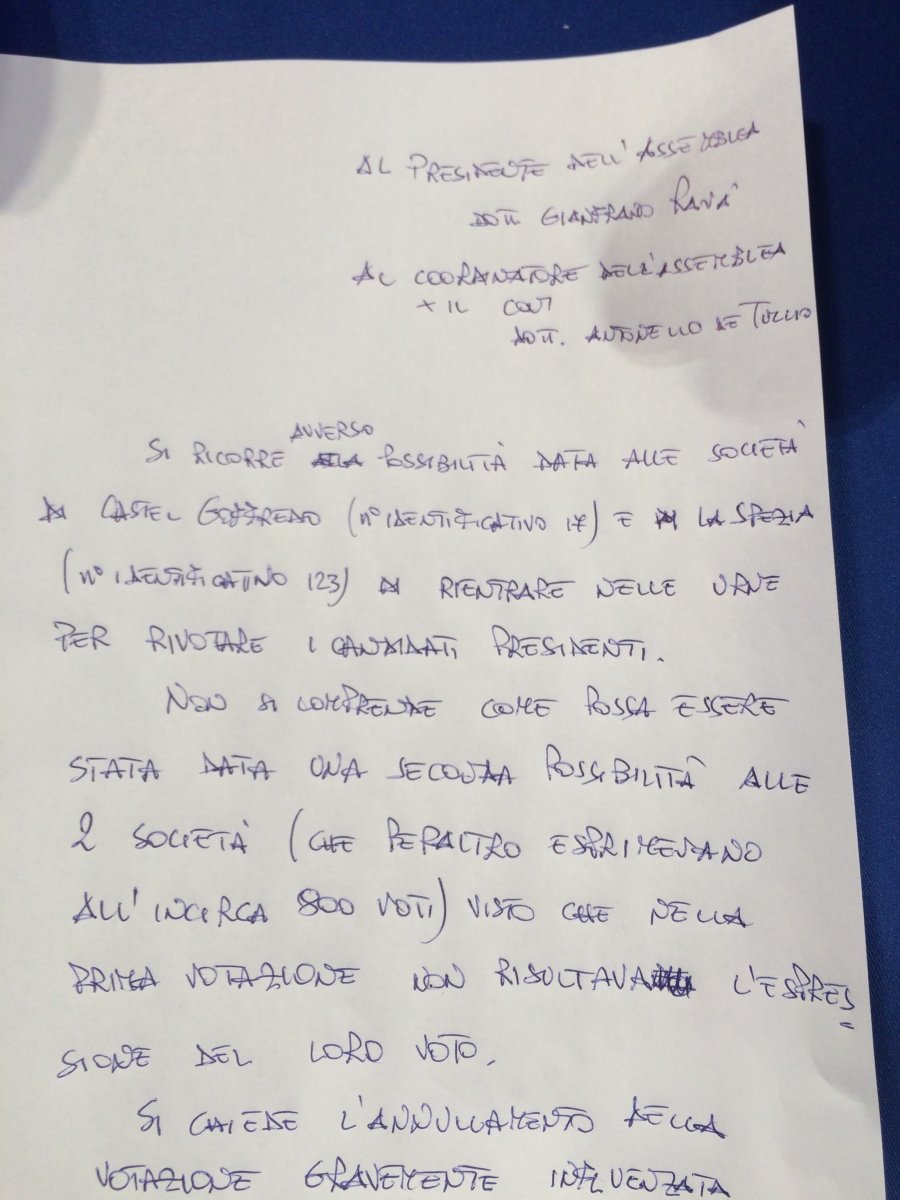 AL PRESIDENTE DELL'ASSEMBLEA
DOTT. GIANFRANO RAVÀ
AL COORDINATORE DELL'ASSEMBLEA
+ IL CONI
DOTT. ANTONELLO DE TULLIO
AVVERSO
SI RICORRE POSSIBILITÀ DATA ALLE SOCIETÀ
CASTEL GOFFREDO (N° IDENTIFICATIVO 17) E LA SPEZIA
(N° IDENTIFICATIVO 123) DI RIENTRARE NELLE URNE
PER RIVOTARE I CANDIDATI PRESIDENTI.
NON SI COMPRENDE COME POSSA ESSERE
STATA DATA UNA SECONDA POSSIBILITÀ ALLE
2 SOCIETÀ (CHE PERALTRO ESPRIMEVANO
ALL'INCIRCA 800 VOTI) VISTO CHE NELLA
PRIMA VOTAZIONE NON RISULTAVA L'ESPRES=
SIONE DEL LORO VOTO.
SI CHIEDE L'ANNULLAMENTO DELLA
VOTAZIONE GRAVEMENTE INFLUENZATA